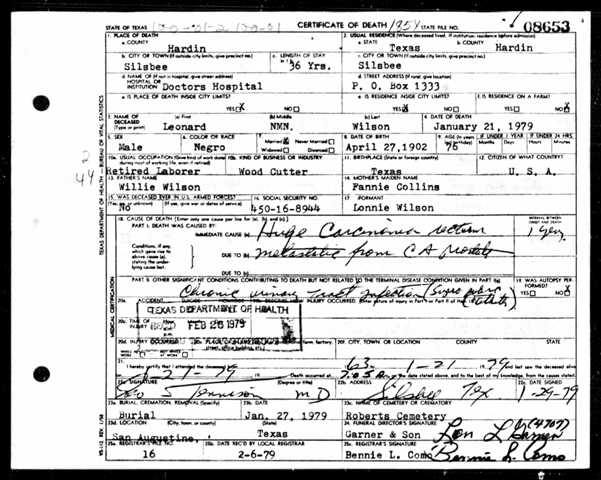 STATE OF TEXAS
CERTIFICATE OF DEATH
STATE FILE NO.
08653
1. PLACE OF DEATH
2. USUAL RESIDENCE (Where deceased lived. If institution: residence before admission)
a. COUNTY
Hardin
a. STATE
Texas
b. COUNTY
Hardin
b. CITY OR TOWN (If outside city limits, give precinct no.)
Silsbee
c. LENGTH OF STAY
36 Yrs.
c. CITY OR TOWN (If outside city limits, give precinct no.)
Silsbee
d. NAME OF (If not in hospital, give street address)
HOSPITAL OR
INSTITUTION
Doctors Hospital
d. STREET ADDRESS (If rural, give location)
P. O. Box 1333
e. IS PLACE OF DEATH INSIDE CITY LIMITS?
YES NO
e. IS RESIDENCE INSIDE CITY LIMITS?
YES NO
f. IS RESIDENCE ON A FARM?
YES NO
3. NAME OF DECEASED (Type or print)
(a) First
Leonard
(b) Middle
NMN.
(c) Last
Wilson
4. DATE OF DEATH
January 21, 1979
5. SEX
Male
6. COLOR OR RACE
Negro
7. Married Never Married
Widowed Divorced
8. DATE OF BIRTH
April 27,1902
9. AGE (In years last birthday)
76
IF UNDER 1 YEAR
Months Days
IF UNDER 24 HRS.
Hours Min.
10a. USUAL OCCUPATION (Give kind of work done
Retired Laborer
10b. KIND OF BUSINESS OR INDUSTRY
Wood Cutter
11. BIRTHPLACE (State or foreign country)
Texas
12. CITIZEN OF WHAT COUNTRY?
U. S. A.
13. FATHER'S NAME
Willie Wilson
14. MOTHER'S MAIDEN NAME
Fannie Collins
15. WAS DECEASED EVER IN U.S. ARMED FORCES?
No
16. SOCIAL SECURITY NO.
450-16-8944
17. INFORMANT
Lonnie Wilson
18. CAUSE OF DEATH (Enter only one cause per line for (a), (b), and (c).)
PART I. DEATH WAS CAUSED BY:
IMMEDIATE CAUSE (a)
Huge Carcinoma rectum
INTERVAL BETWEEN ONSET AND DEATH
Conditions, if any, which gave rise to above cause (a), stating the underlying cause last.
DUE TO (b)
metastatic from CA prostate
DUE TO (c)
PART II. OTHER SIGNIFICANT CONDITIONS CONTRIBUTING TO DEATH BUT NOT RELATED TO THE TERMINAL DISEASE CONDITION GIVEN IN PART I(a)
19. WAS AUTOPSY PERFORMED?
YES NO
Chronic urinary tract infection
TEXAS DEPARTMENT OF HEALTH
REC'D FEB 26 1979
20f. CITY, TOWN, OR LOCATION
COUNTY
STATE
21. I hereby certify that I attended the deceased from
63
1-21 79
and last saw the deceased alive
1-21 79
Death occurred at
7:05 A
m on the date stated above, and to the best of my knowledge, from the causes stated.
22a. SIGNATURE
(Degree or title)
MD
22b. ADDRESS
Silsbee Tex
22c. DATE SIGNED
1-29-79
23a. BURIAL, CREMATION, REMOVAL (Specify)
Burial
23b. DATE
Jan. 27, 1979
23c. NAME OF CEMETERY OR CREMATORY
Roberts Cemetery
23d. LOCATION (City, town, or county)
(State)
San Augustine, Texas
24. FUNERAL DIRECTOR'S SIGNATURE
Garner & Son
(4707)
25a. REGISTRAR'S FILE NO.
16
25b. DATE REC'D BY LOCAL REGISTRAR
2-6-79
25c. REGISTRAR'S SIGNATURE
Bennie L. Como
Bennie L. Como
TEXAS DEPARTMENT OF HEALTH — BUREAU OF VITAL STATISTICS
MEDICAL CERTIFICATION